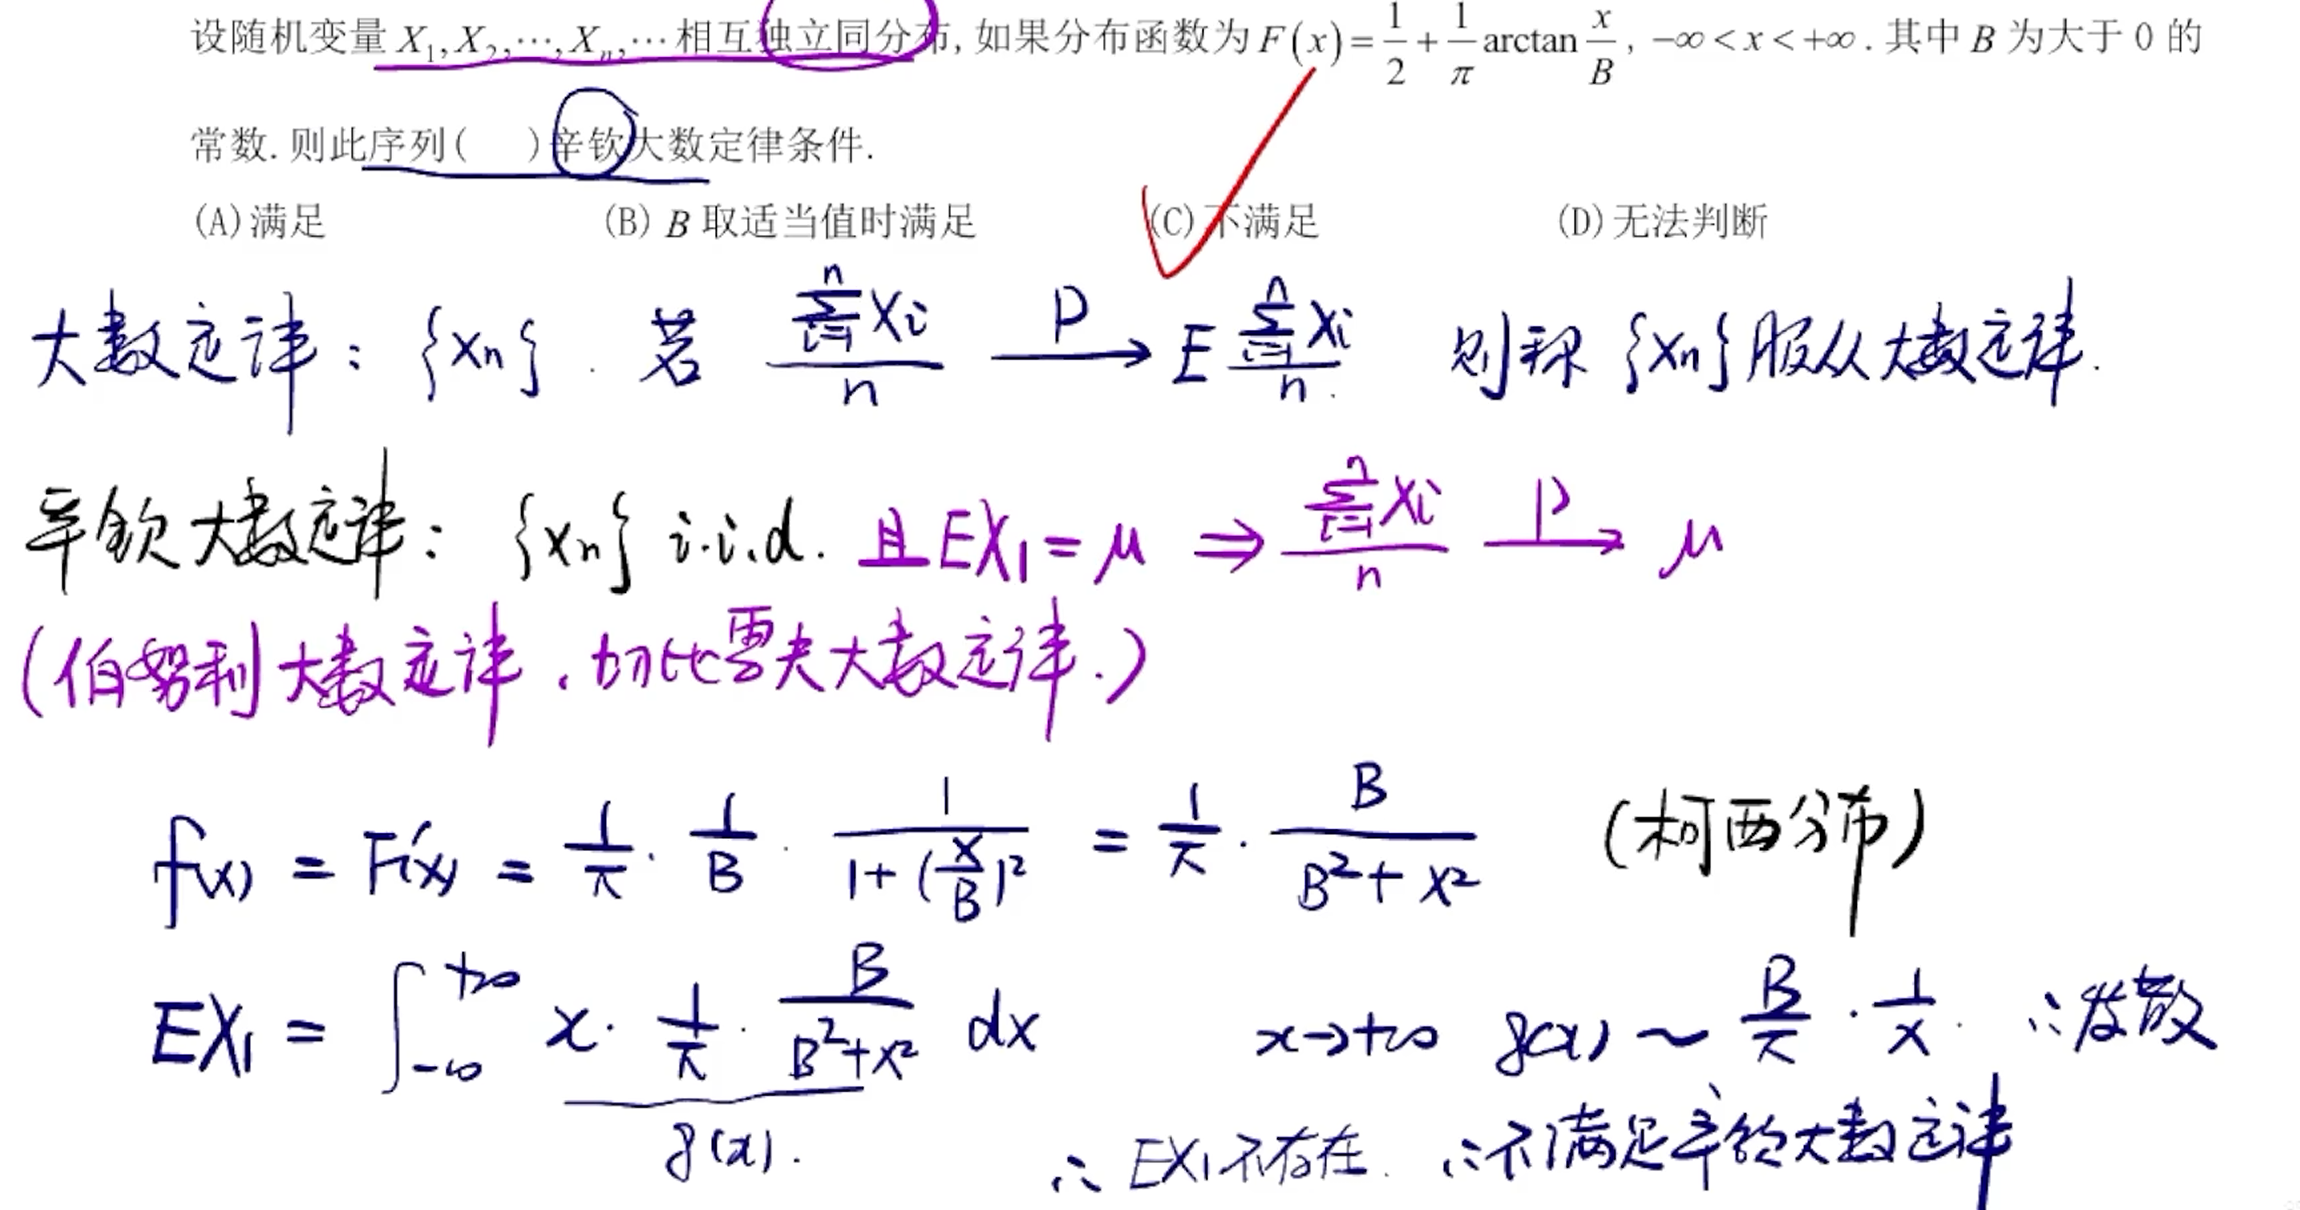 设随机变量 X₁, X₂, ⋯, Xₙ, ⋯ 相互独立同分布, 如果分布函数为 F(x) = 1/2 + 1/π arctan x/B, −∞ < x < +∞. 其中 B 为大于 0 的
常数. 则此序列( )辛钦大数定律条件.
(A)满足 (B) B 取适当值时满足 (C)不满足 (D)无法判断
大数定律: {Xn}. 若 ∑ᵢ₌₁ⁿ Xi / n —P→ E ∑ᵢ₌₁ⁿ Xi / n. 则称 {Xn} 服从大数定律.
辛钦大数定律: {Xn} i.i.d. 且 EX₁ = μ ⇒ ∑ᵢ₌₁ⁿ Xi / n —P→ μ
(伯努利大数定律, 切比雪夫大数定律.)
f(x) = F'(x) = 1/π · 1/B · 1/(1+(x/B)²) = 1/π · B/(B²+x²) (柯西分布)
EX₁ = ∫₋∞⁺∞ x · 1/π · B/(B²+x²) dx x→+∞ g(x) ~ B/π · 1/x. ∴发散
g(x). ∴ EX₁不存在. ∴不满足辛钦大数定律